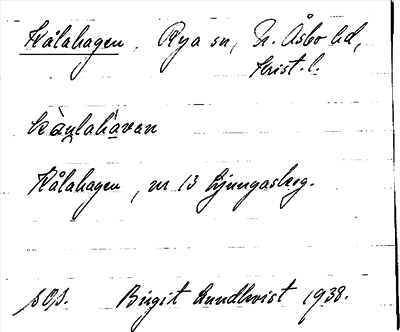 Kålahagen, Rya sn, N. Åsbo hd,
Krist. l.
Kålahagen, nr 13 Ljungaskog.
sOs. Birgit Lundkvist 1938.